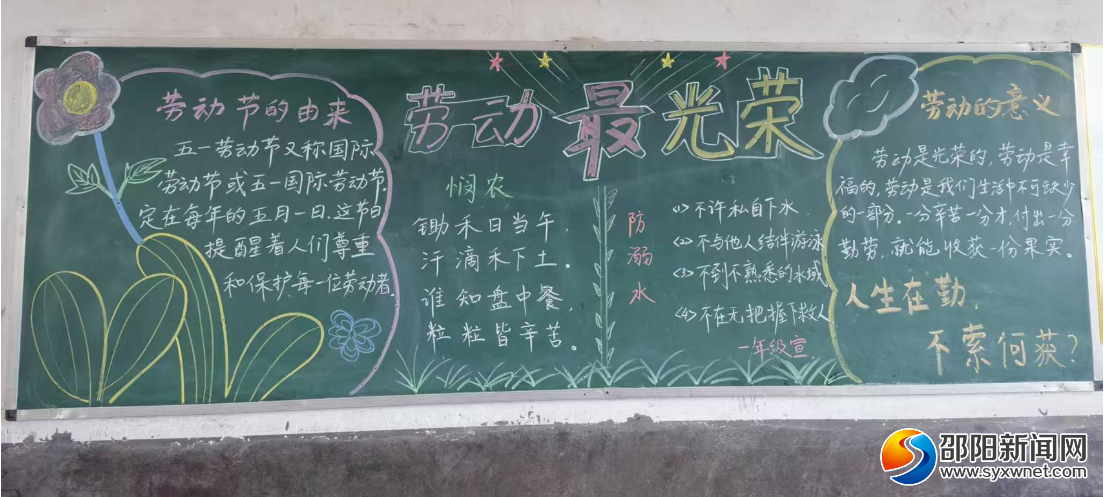 劳动最光荣
劳动节的由来
五一劳动节又称国际
劳动节或五一国际劳动节,
定在每年的五月一日.这节日
提醒着人们尊重
和保护每一位劳动者.
悯农
锄禾日当午,
汗滴禾下土。
谁知盘中餐,
粒粒皆辛苦。
防溺水
<1>不许私自下水.
<2>不与他人结伴游泳
<3>不到不熟悉的水域
<4>不在无把握下救人
一年级宣.
劳动的意义
劳动是光荣的,劳动是幸
福的,劳动是我们生活中不可缺少
的一部分.一分辛苦一分才,付出一分
勤劳,就能收获一份果实。
人生在勤,
不索何获?
邵阳新闻网
www.syxwnet.com